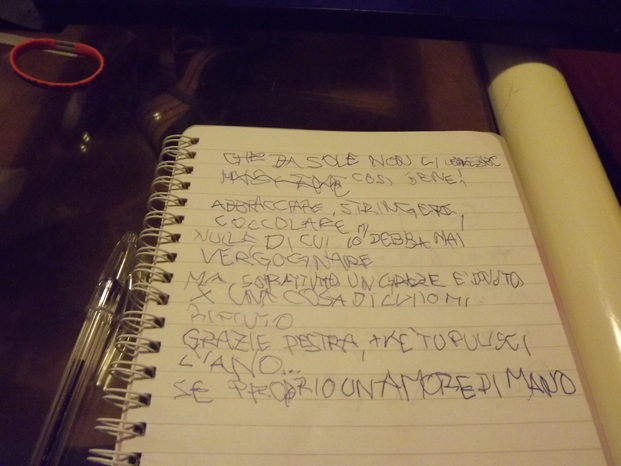 CHE DA SOLE NON CI
COSÌ BENE!
ABBRACCIARE, STRINGERE,
COCCOLARE,
NULLA DI CUI IO DEBBA MAI
VERGOGNARE
MA SOPRATTUTTO UN GRAZIE È DOVUTO
X UNA COSA DI CUI OMI
RIFIUTO
GRAZIE DESTRA, CHE TU PULISCI
L'ANO...
SE PROPRIO UN AMORE DI MANO